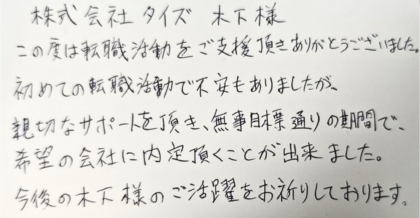 株式会社タイズ 木下様
この度は転職活動をご支援頂きありがとうございました。
初めての転職活動で不安もありましたが、
親切なサポートを頂き、無事目標通りの期間で、
希望の会社に内定頂くことが出来ました。
今後の木下様のご活躍をお祈りしております。